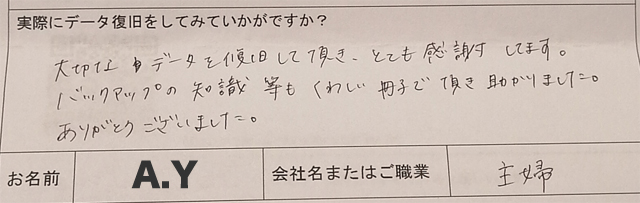 実際にデータ復旧をしてみていかがですか？
大切なデータを復旧して頂き、とても感謝してます。
バックアップの知識等もくわしい冊子で頂き助かりました。
ありがとうございました。
お名前 A.Y 会社名またはご職業 主婦